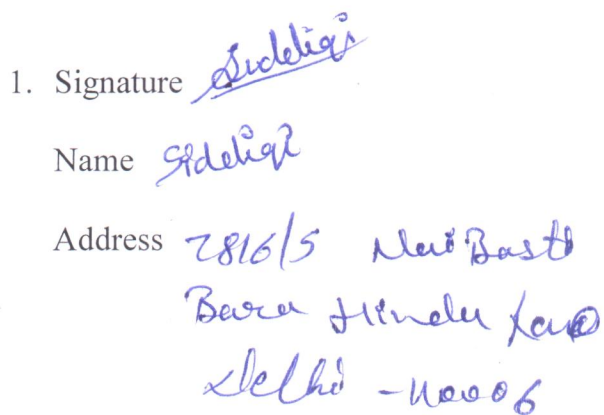 1. Signature Siddiqi
Name Siddiqi
Address 7816/5 Nai Basti
Bara Hindu Rao
Delhi - 110006